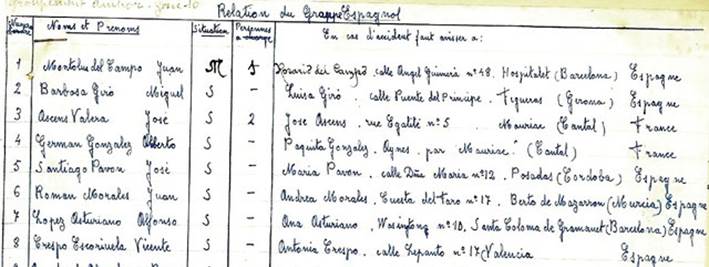 Relation du Groupe Espagnol
Noms et Prenoms Situation Personnes a charge En cas d'accident faut aviser a:
1 Montolus del Campo Juan M 5 Rosario del Campo. calle Angel Guimerà nº 48. Hospitalet (Barcelona) Espagne
2 Barbosa Giró Miguel S - Luisa Giró. calle Puente del Principe. Figueras (Gerona) Espagne
3 Ascens Valera José S 2 Jose Ascens. rue Egalité nº 5 Mauriac (Cantal) France
4 German Gonzalez Alberto S - Paquita Gonzalez. Aynes. par Mauriac (Cantal) France
5 Santiago Pavon José S - Maria Pavon. calle Dña Maria nº 12. Posadas (Cordoba) Espagne
6 Roman Morales Juan S - Andrea Morales. Cuesta del Faro nº 17. Berto de Mazarron (Murcia) Espagne
7 Lopez Asturiano Alfonso S - Ana Asturiano. Wasintong nº 10. Santa Coloma de Gramanet (Barcelona) Espagne
8 Crespo Escorihuela Vicente S - Antonia Crespo. calle Lepanto nº 17 (Valencia Espagne